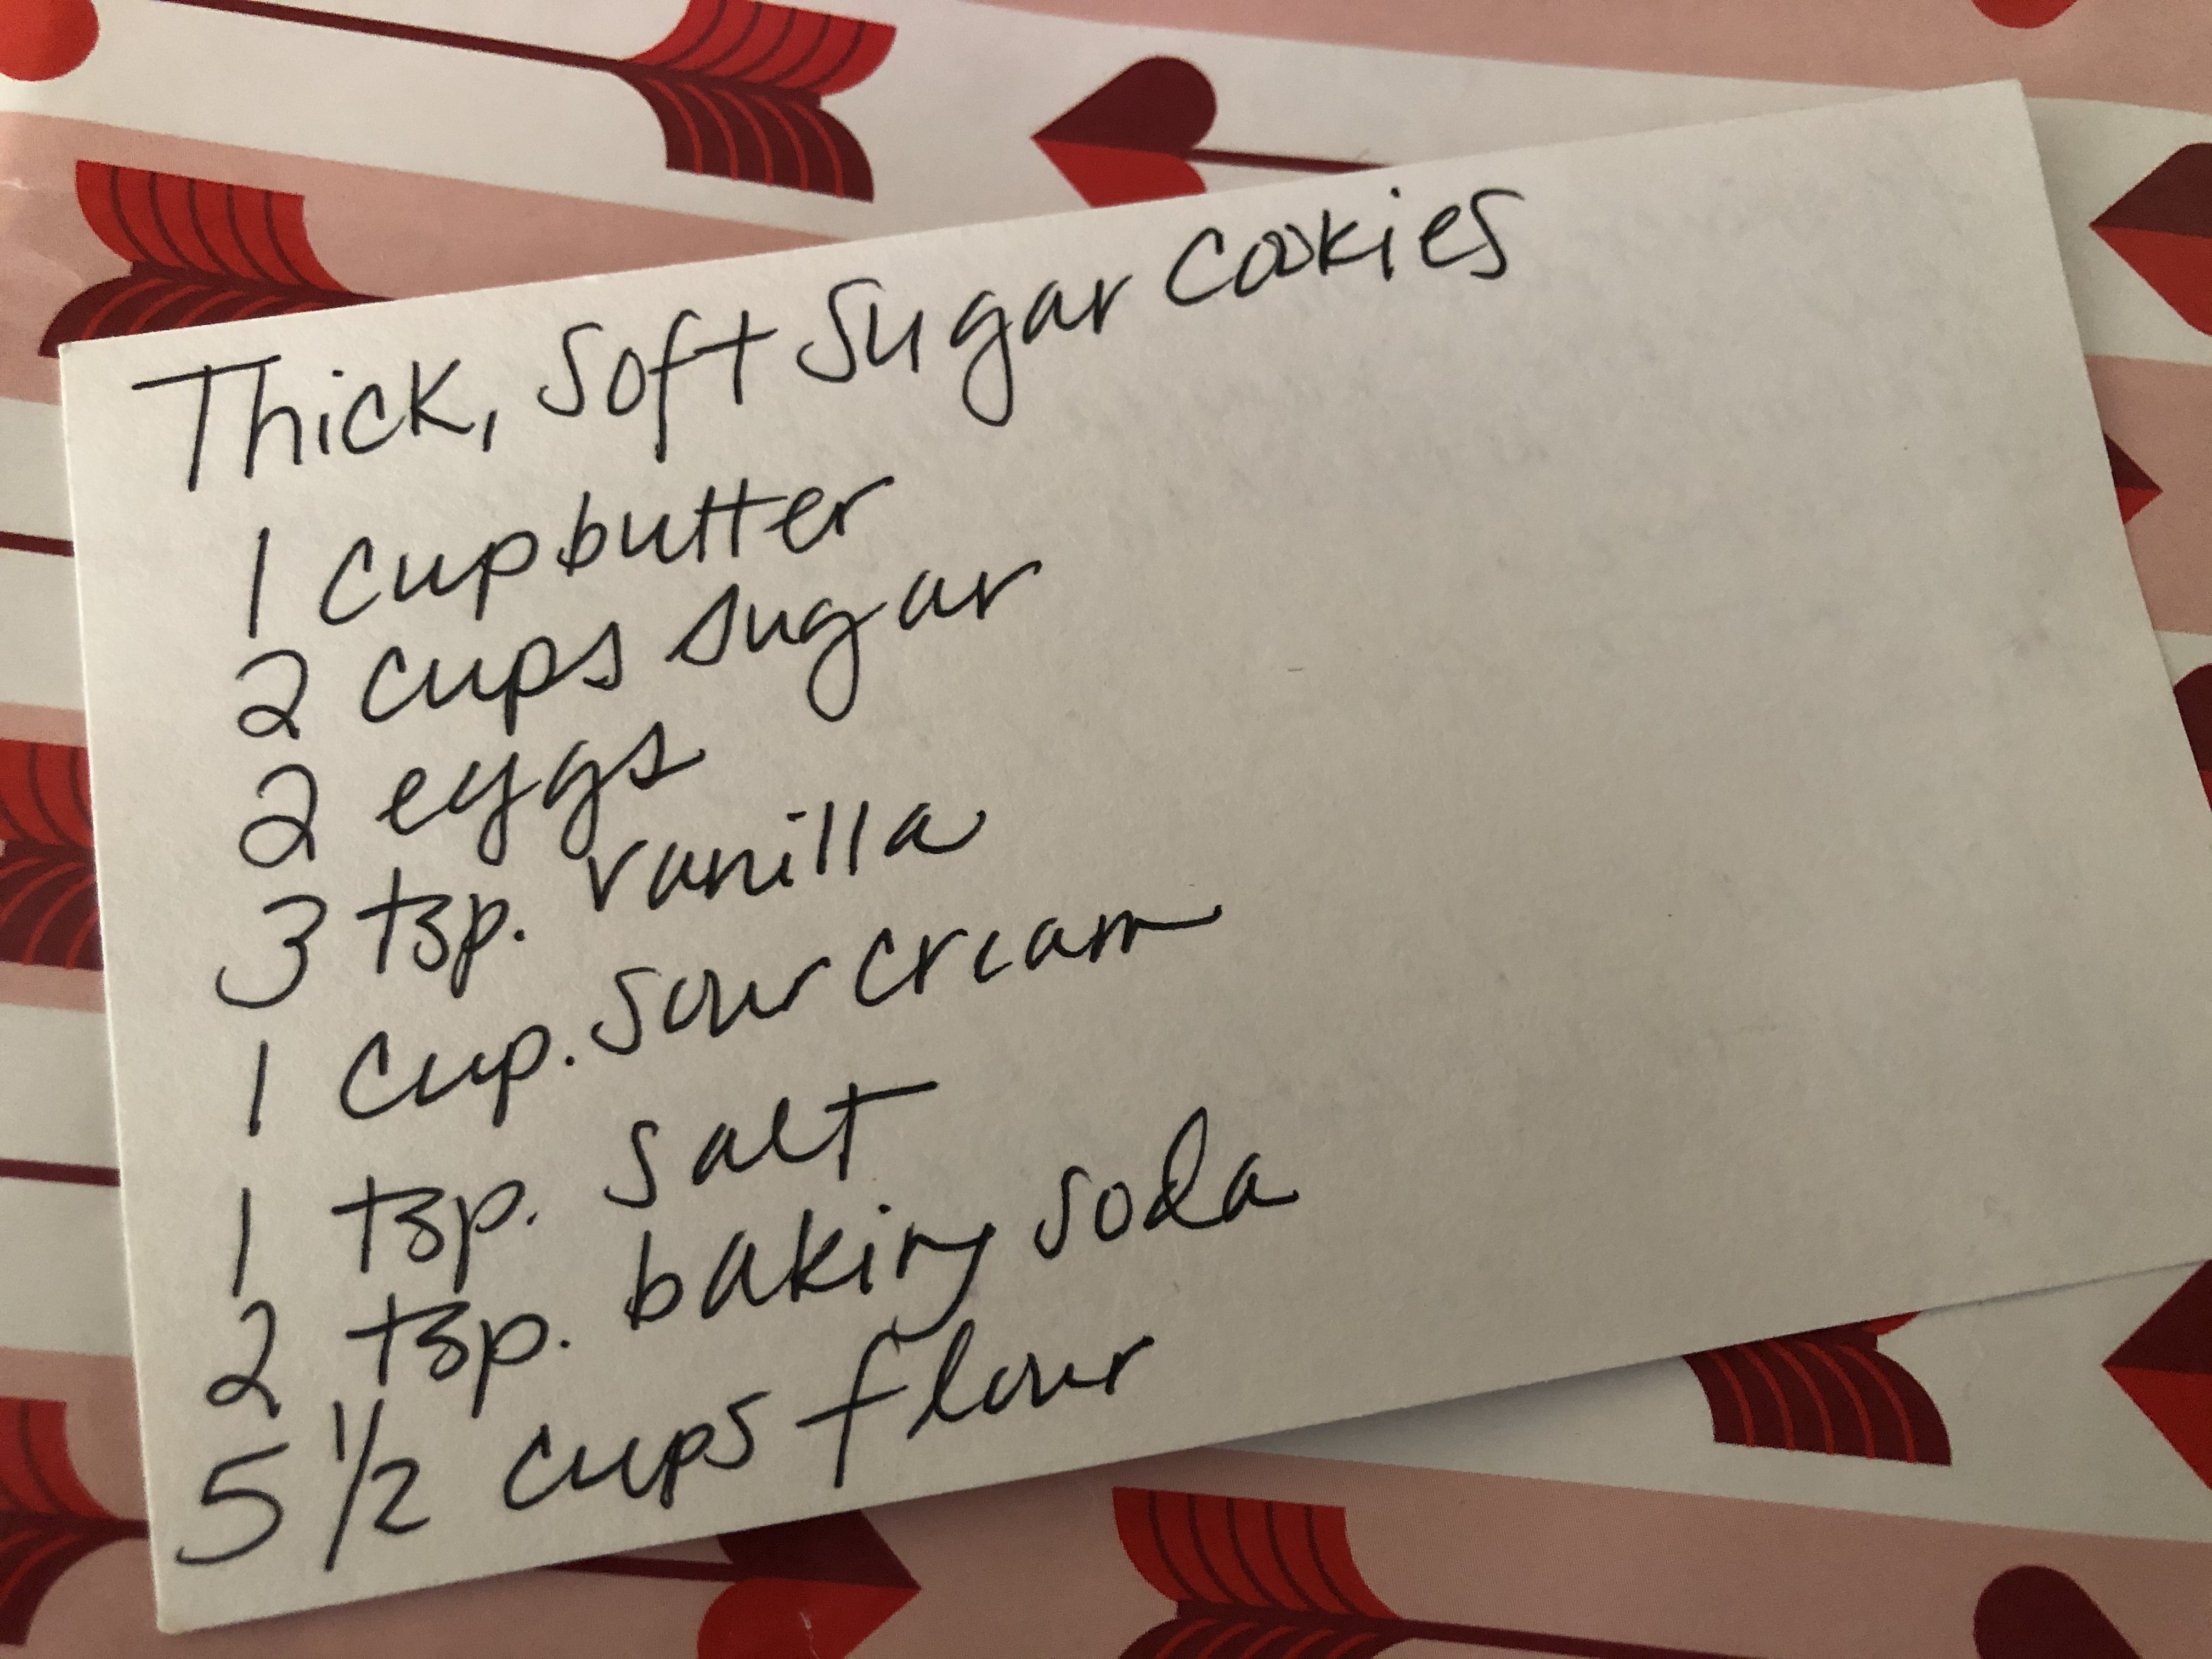 Thick, Soft Sugar Cookies
1 cup butter
2 cups sugar
2 eggs
3 tsp. vanilla
1 cup. sour cream
1 tsp. salt
2 tsp. baking soda
5 1/2 cups flour